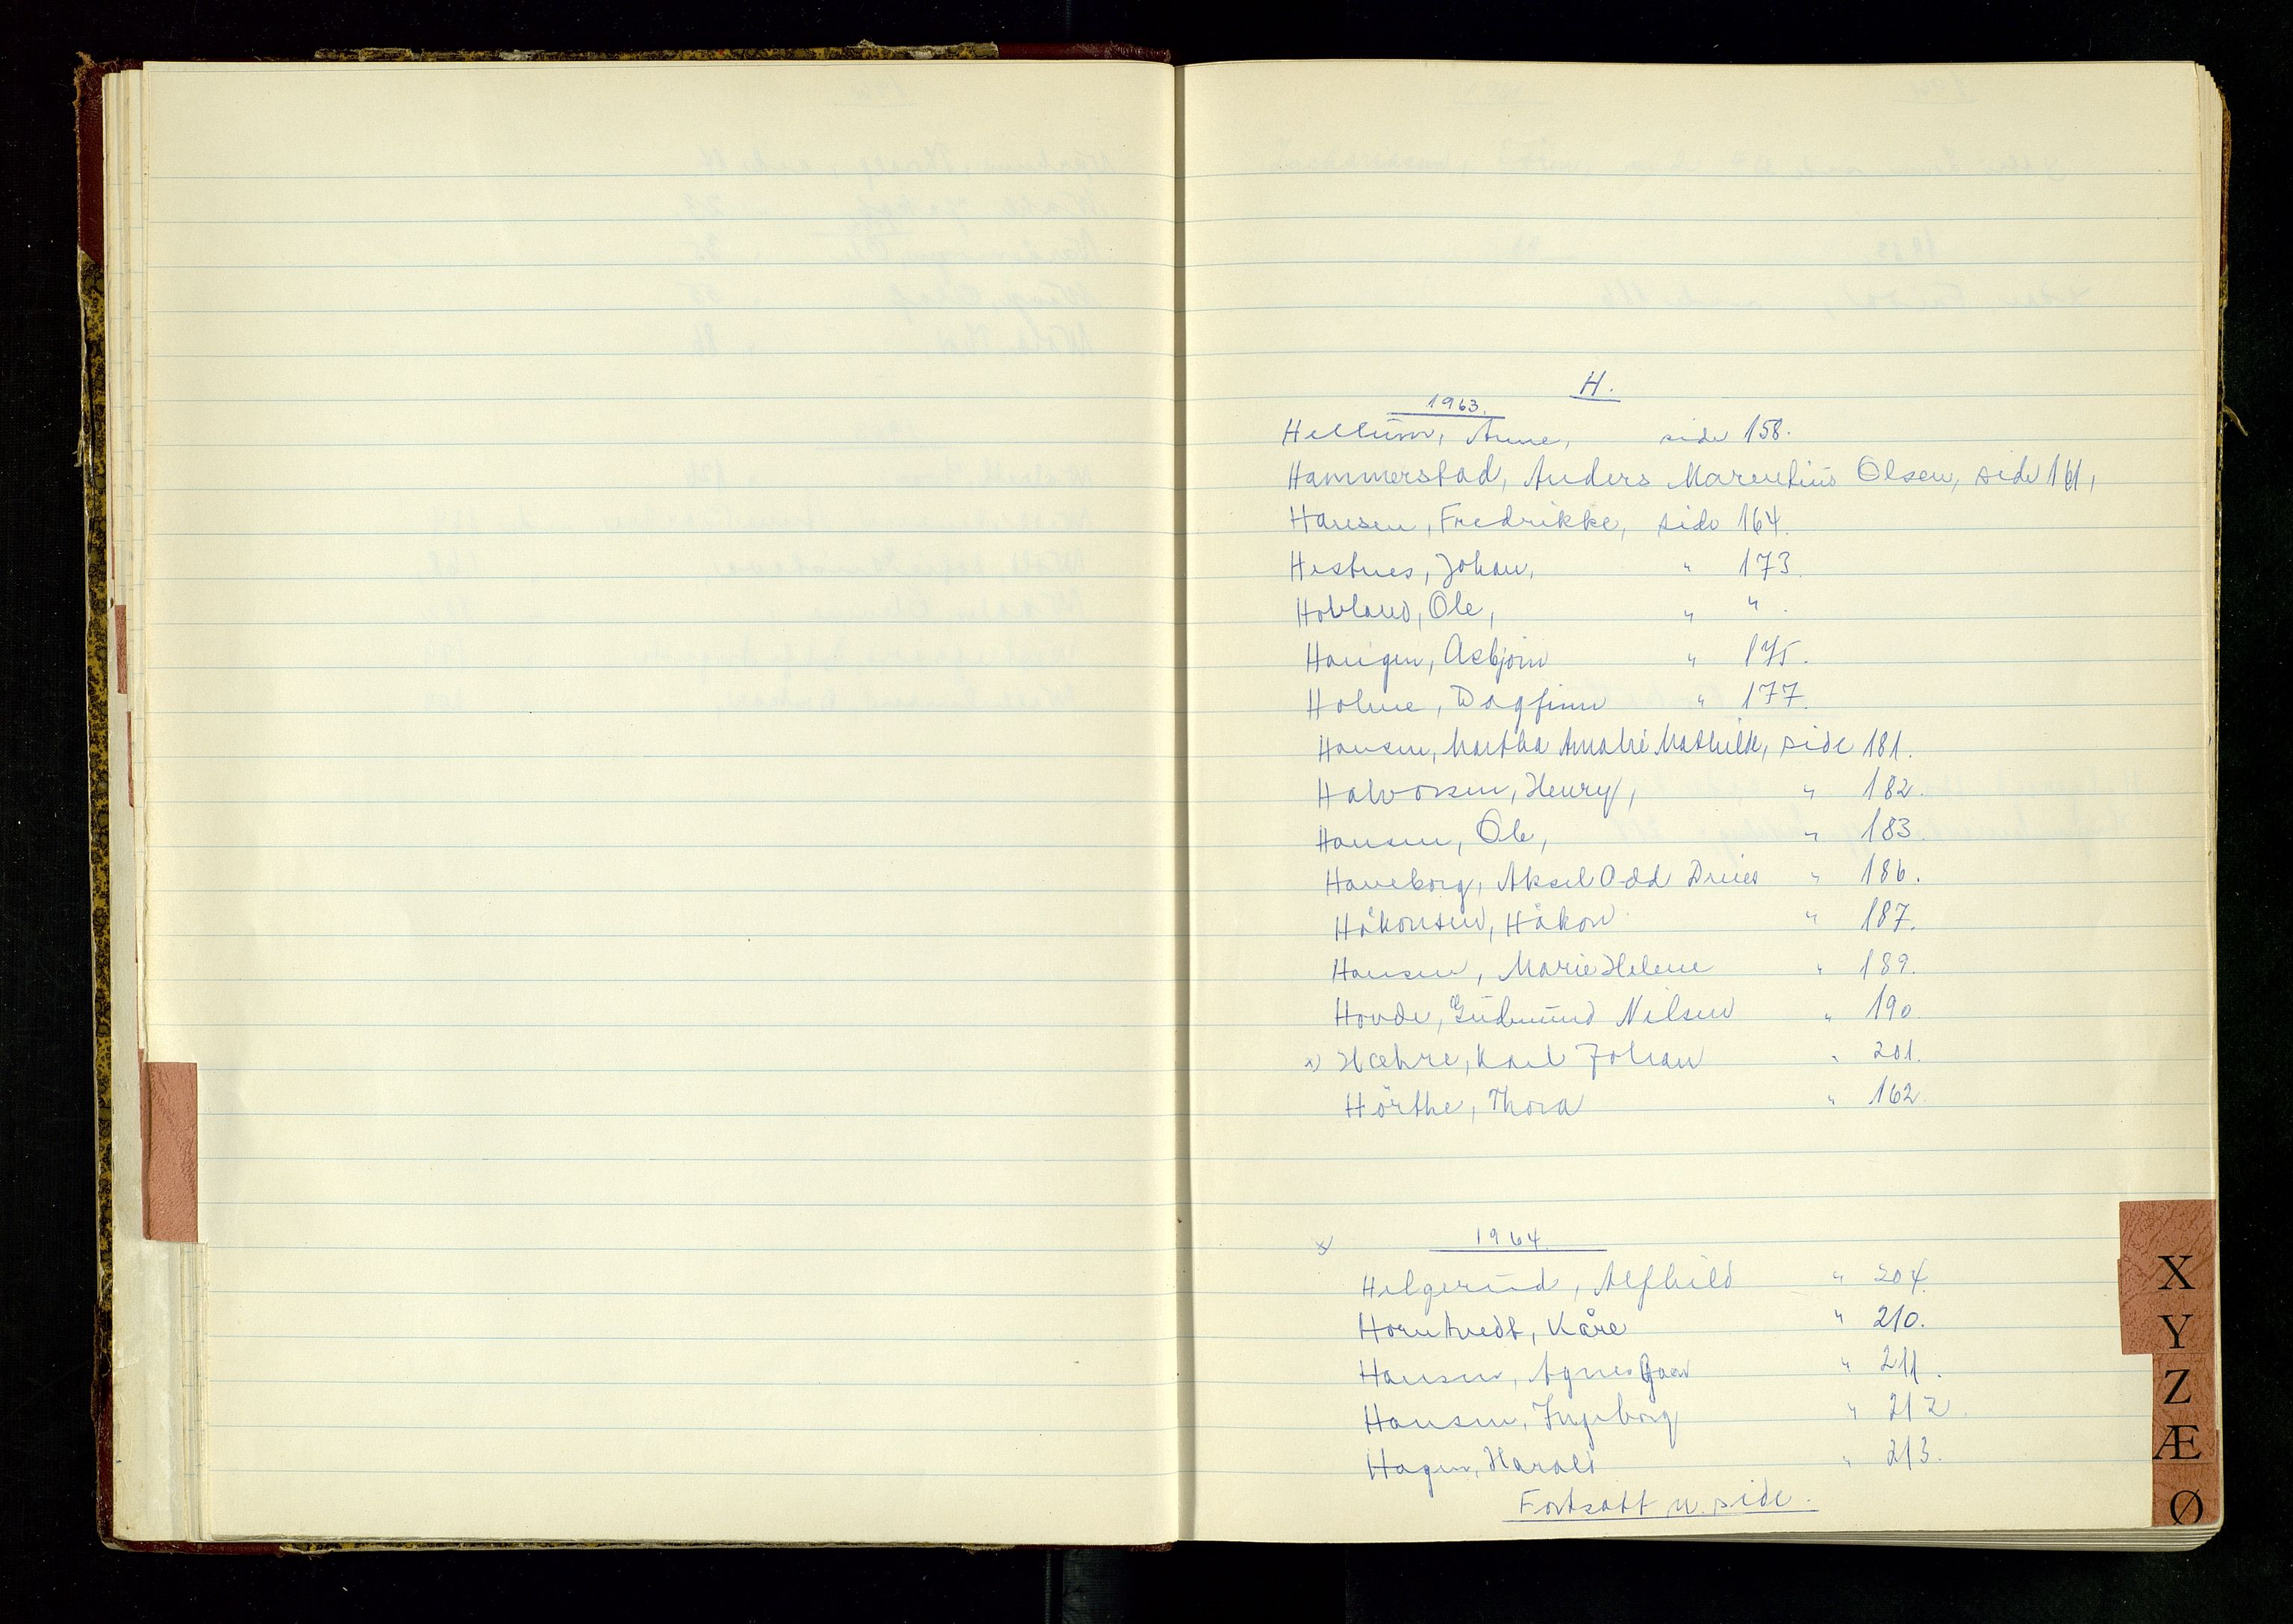 H.
1963.
Hellum, Anne, side 158.
Hammerstad, Anders Marentius Olsen, side 161,
Hansen, Fredrikke, side 164.
Hestnes, Johan, " 173.
Hovland, Ole, " ".
Haugen, Asbjørn " 175.
Holme, Dagfinn " 177.
Hansen, Martha Amalie Mathilde, side 181.
Halvorsen, Henry, " 182.
Hansen, Ole, " 183.
Haneborg, Aksel Odd " 186.
Håkonsen, Håkon " 187.
Hansen, Marie Helene " 189.
Hovde, Gudmund Nilsen " 190.
x) Hæhre, Karl Johan " 201.
Hörthe, Thora " 162.
x 1964.
Helgerud, Alfhild " 204.
Horntvedt, Kåre " 210.
Hansen, Agnes " 211.
Hansen, Ingeborg " 212.
Hagen, Harald " 213.
Fortsatt n. side.
X
Y
Z
Æ
Ø